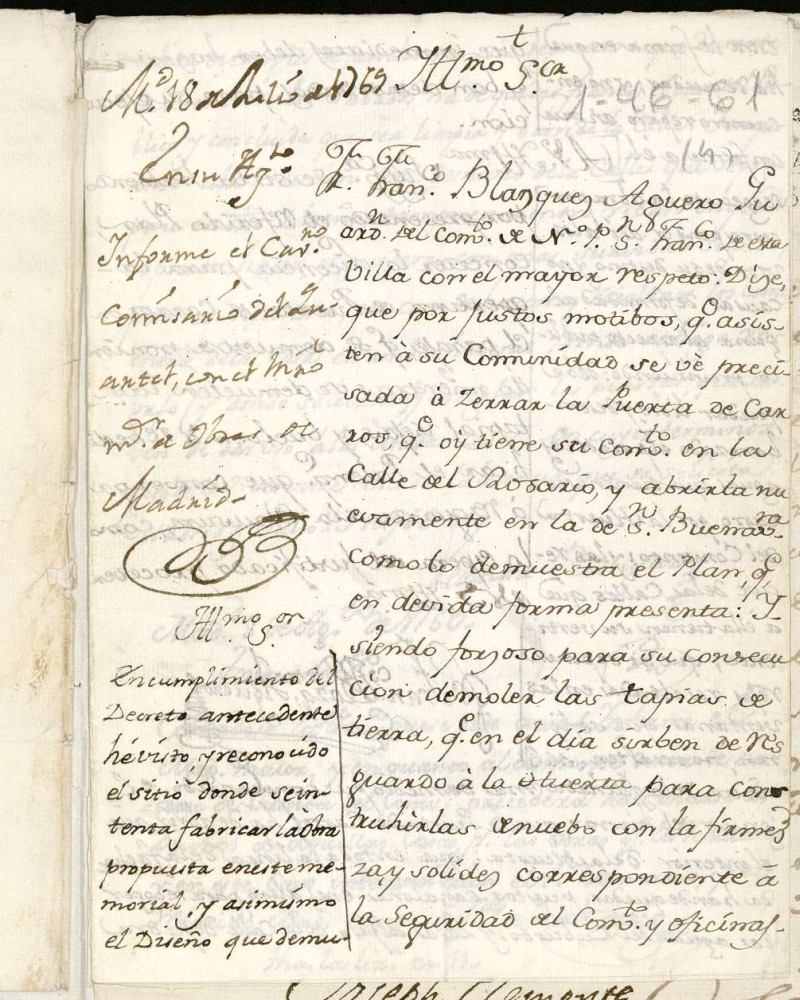 t
Yllmo. Sor.
1-46-61
(4)
Md. 18 de Julio de 1769
En su Aymto.
Informe el Cavro.
Comisario del Qu-
artel, con el Thô
mór. de Obras de
Madrid
Fr. Franco. Blazquez Aguero Gu
ardn. del Comto. de N. P. Sn. Franco. de esta
villa con el mayor respeto: Dize,
que por justos motibos, qe. asis-
ten à su Comunidad se vè preci-
sada à zerrar la Puerta de Car
ros, qe. oÿ tiene su Comto. en la
Calle del Rosario, y abrirla nu
evamente en la de Sn. Buenavra.
como lo demuestra el Plan, qe.
en devida forma presenta: Y
siendo forzoso para su consecu
cion demoler las tapias de
tierra, qe. en el dia sirben de res
guardo à la Huerta para cons
truhirlas de nuebo con la firmez
za y solidez correspondiente à
la Seguridad del Comto. y oficinas.
Yllmo. Sor.
En cumplimiento del
Decreto antecedente
hé visto, y reconocido
el sitio donde se in-
tenta fabricar la Obra
propuesta en este me-
morial, y asimismo
el Diseño que demu-
Joseph Clemente